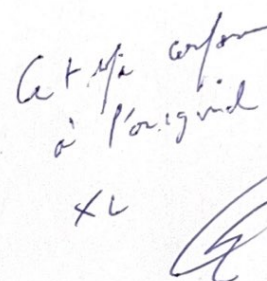 Certifié conforme
à l'original
XL